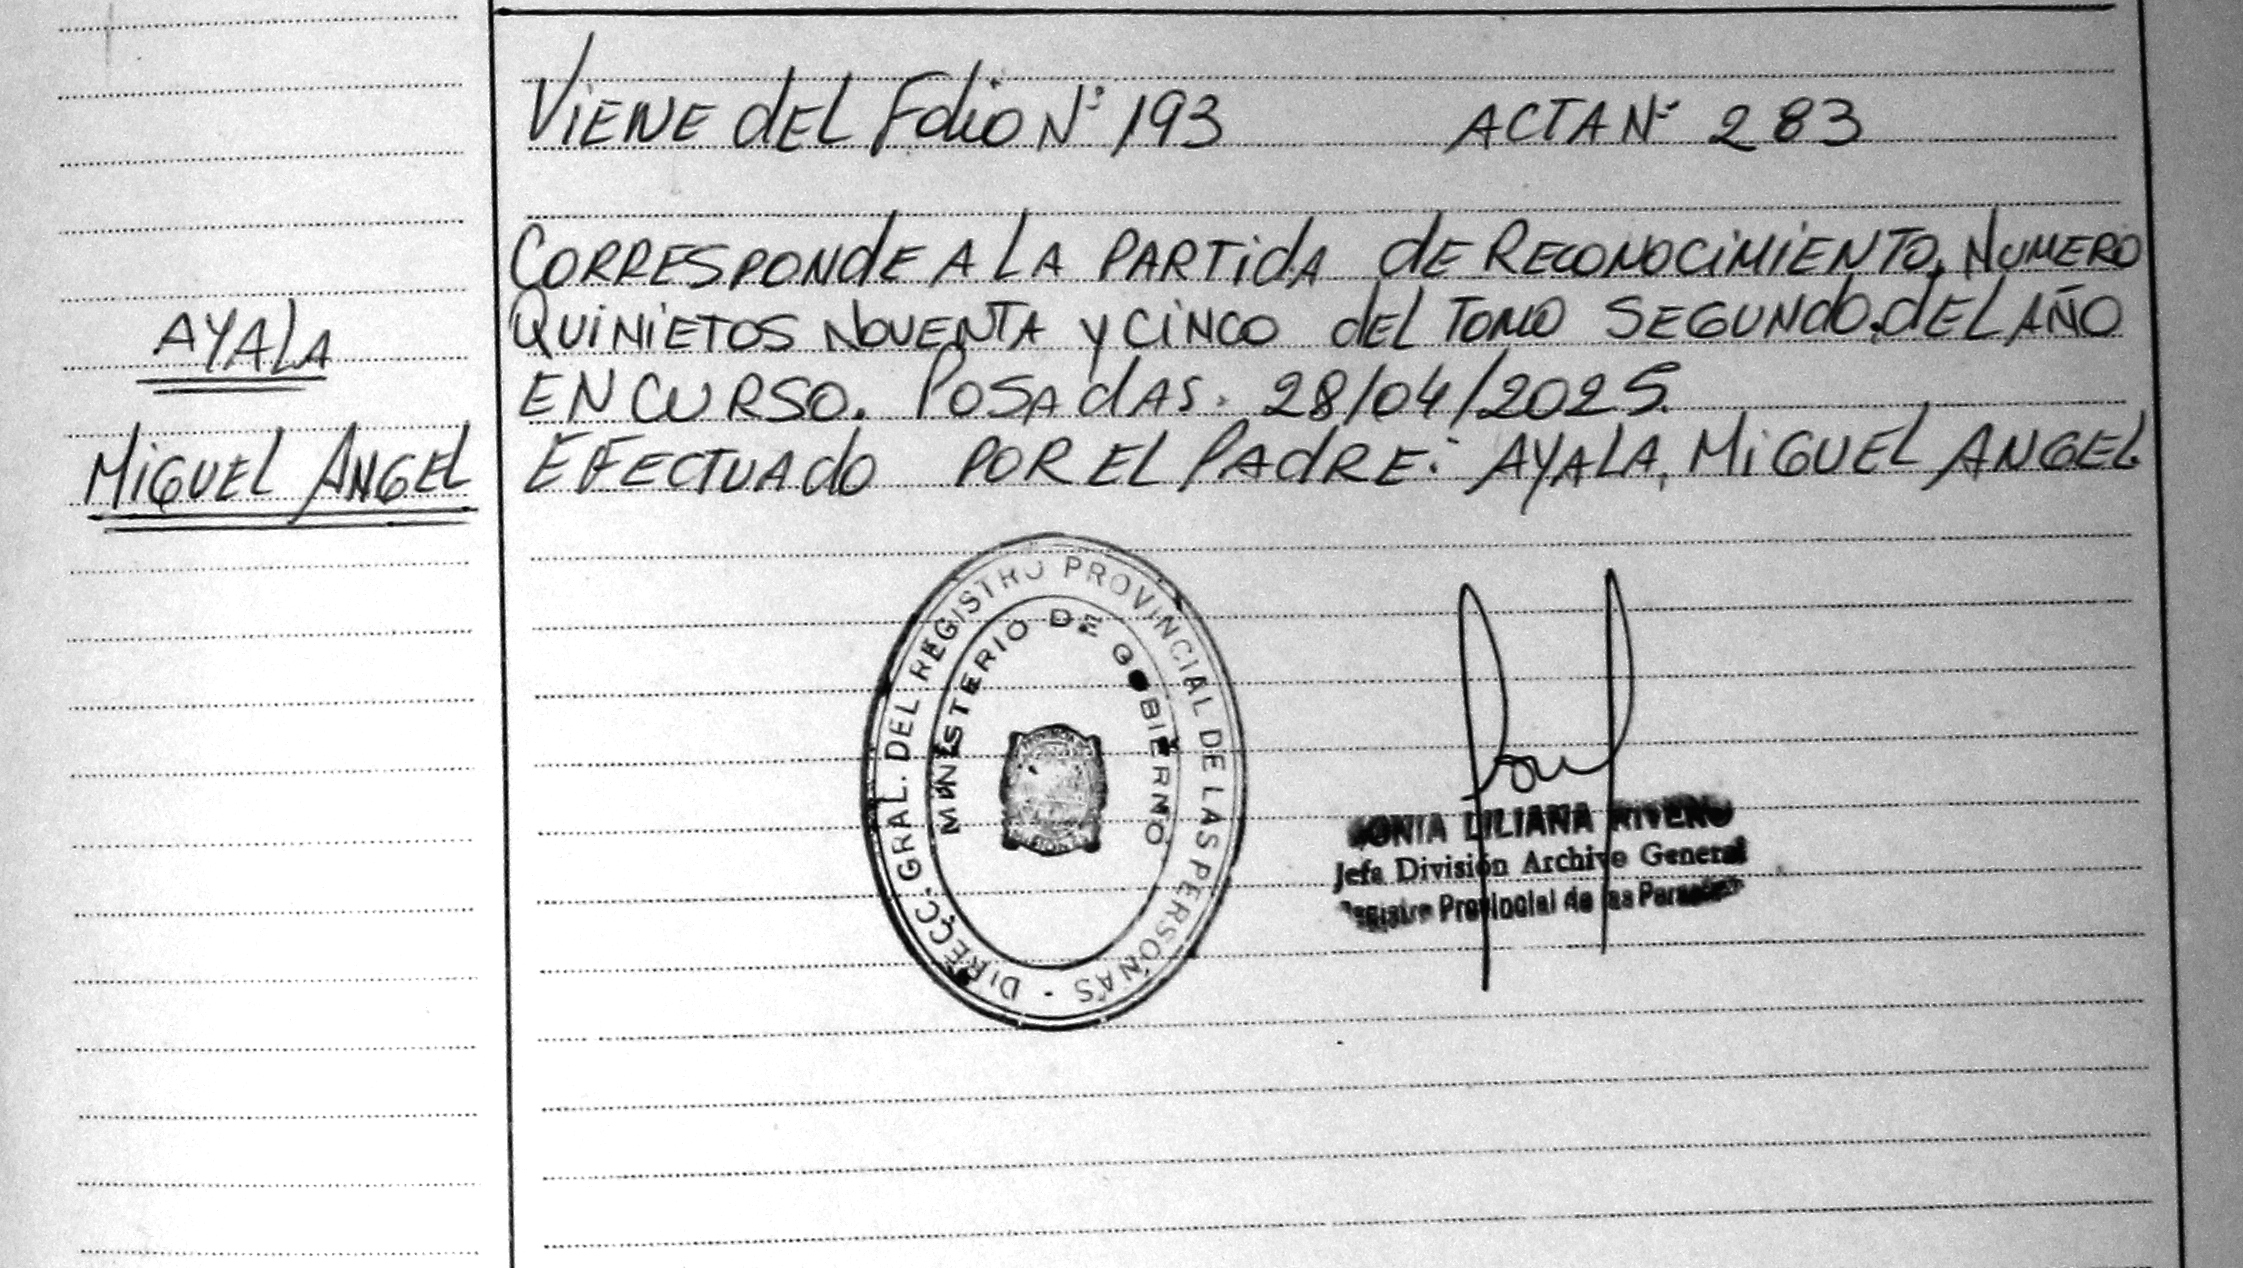 VIENE DEL Folio N° 193 ACTA N° 283
CORRESPONDE A LA PARTIDA DE RECONOCIMIENTO, NUMERO
QUINIETOS NOVENTA Y CINCO DEL TOMO SEGUNDO. DEL AÑO
EN CURSO. POSADAS. 28/04/2025.
EFECTUADO POR EL PADRE: AYALA, MIGUEL ANGEL
AYALA
MIGUEL ANGEL
DIRECC. GRAL. DEL REGISTRO PROVINCIAL DE LAS PERSONAS -
MINISTERIO DE GOBIERNO
SONIA LILIANA RIVERO
Jefa División Archivo General
Registro Provincial de las Personas